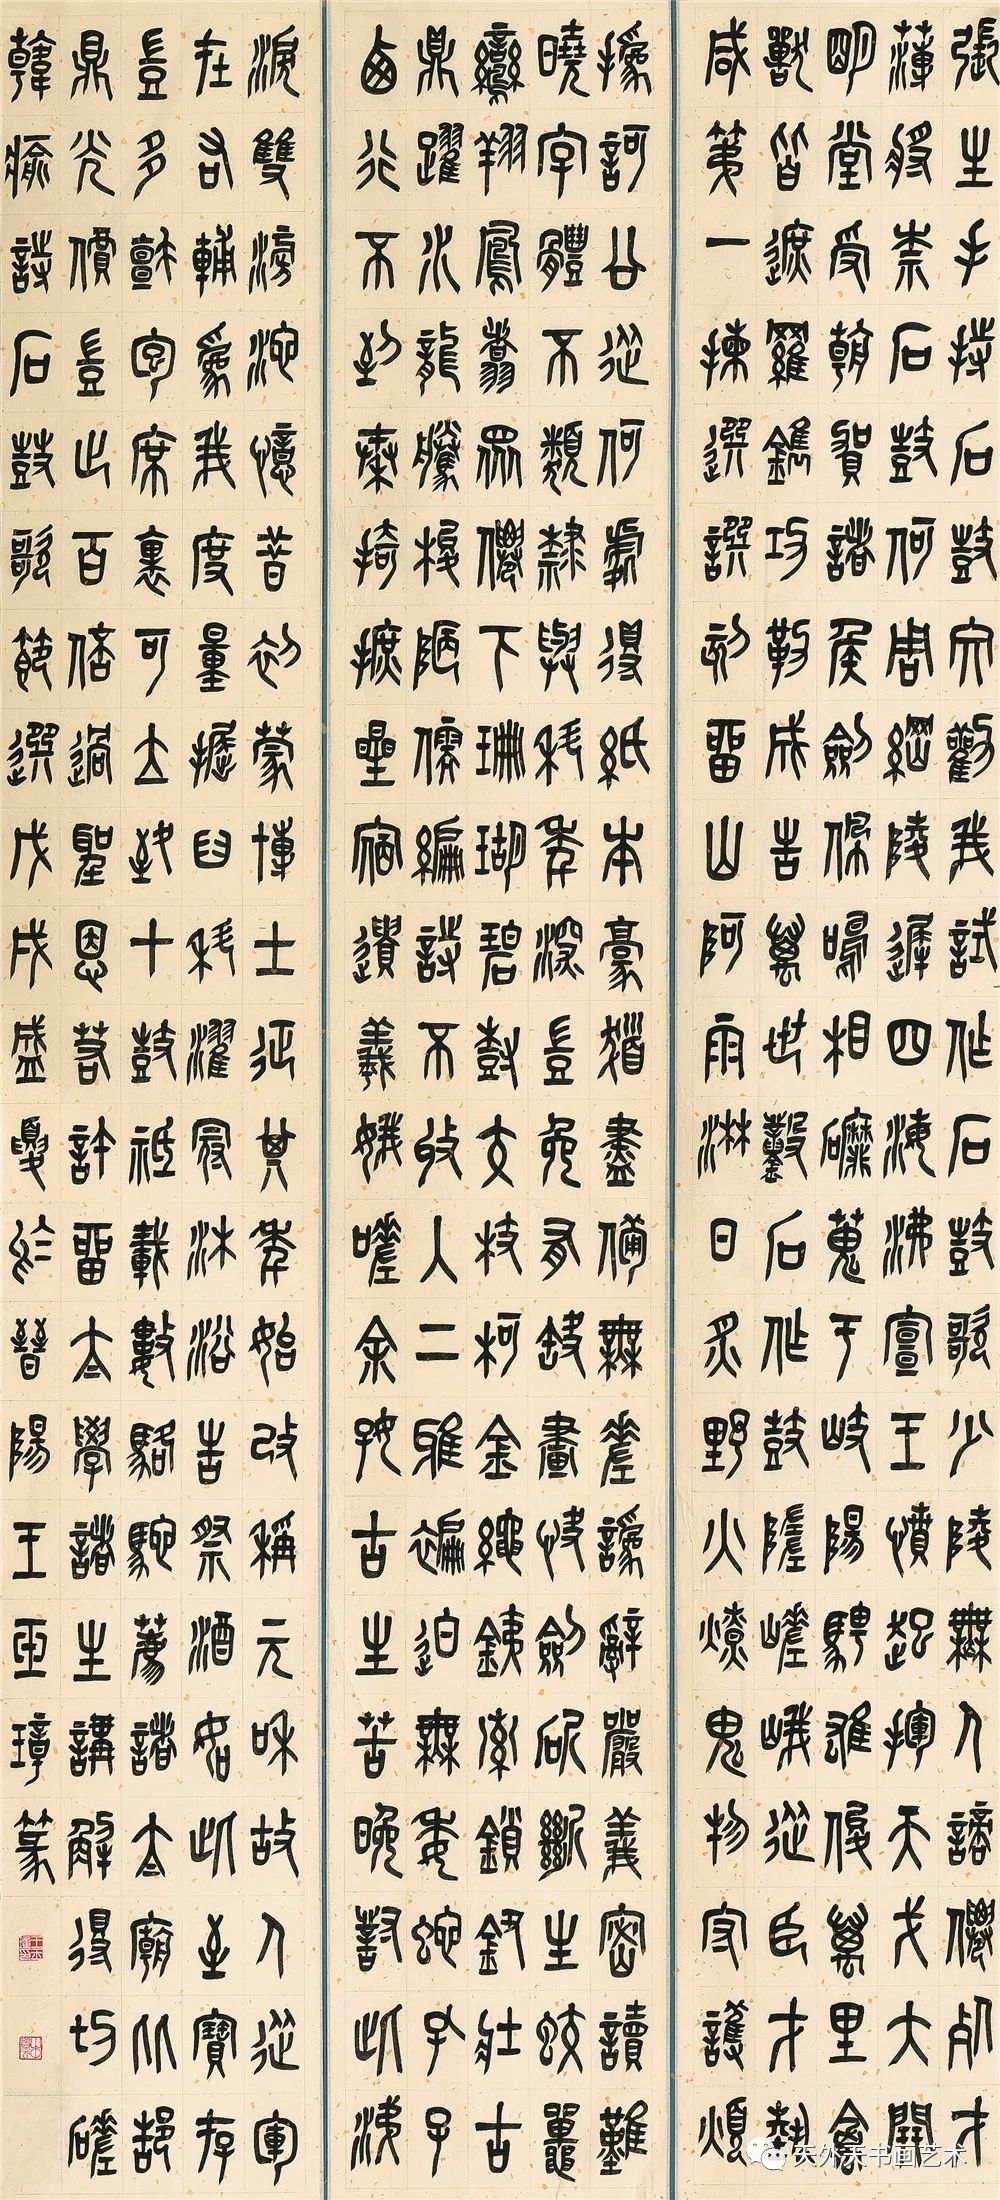 張生手持石鼓文勸我試作石鼓歌少陵無人謫仙死才
薄將奈石鼓何周綱陵遲四海沸宣王憤起揮天戈大開
明堂受朝賀諸侯劍佩鳴相磨蒐于岐陽騁雄俊萬里禽
獸皆遮羅鐫功勒成告萬世鑿石作鼓隳嵯峨從臣才藝
咸第一揀選撰刻留山阿雨淋日炙野火燎鬼物守護煩
撝訶公從何處得紙本毫髮盡備無差訛辭嚴義密讀難
曉字體不類隸與科年深豈免有缺畫快劍斫斷生蛟鼉
鸞翔鳳翥眾仙下珊瑚碧樹交枝柯金繩鐵索鎖鈕壯古
鼎躍水龍騰梭陋儒編詩不收入二雅褊迫無委蛇孔子
西行不到秦掎摭星宿遺羲娥嗟余好古生苦晚對此涕
淚雙滂沱憶昔初蒙博士征其年始改稱元和故人從軍
在右輔為我度量掘臼科濯冠沐浴告祭酒如此至寶存
豈多氈包席裹可立致十鼓祇載數駱駝薦諸太廟比郜
鼎光價豈止百倍過聖恩若許留太學諸生講解得切磋
韓愈詩石鼓歌節選戊戌盛夏於晉陽王亞璋篆
天外天书画艺术